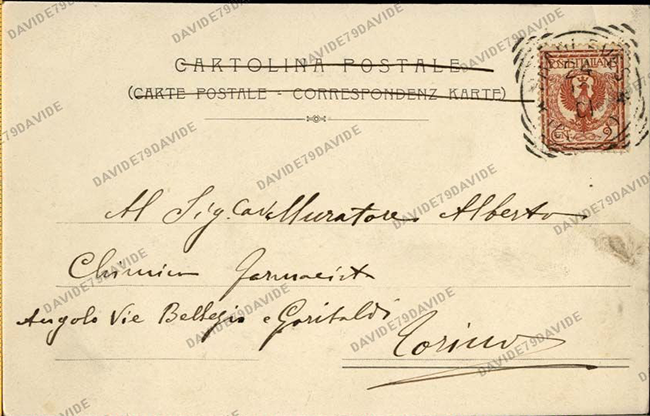 CARTOLINA POSTALE
(CARTE POSTALE - CORRESPONDENZ KARTE)
POSTE ITALIANE
Al Sig. Cav Muratore Alberto
Chimico farmacista
Angolo Vie Bellezia e Garibaldi
Torino
DAVIDE79DAVIDE